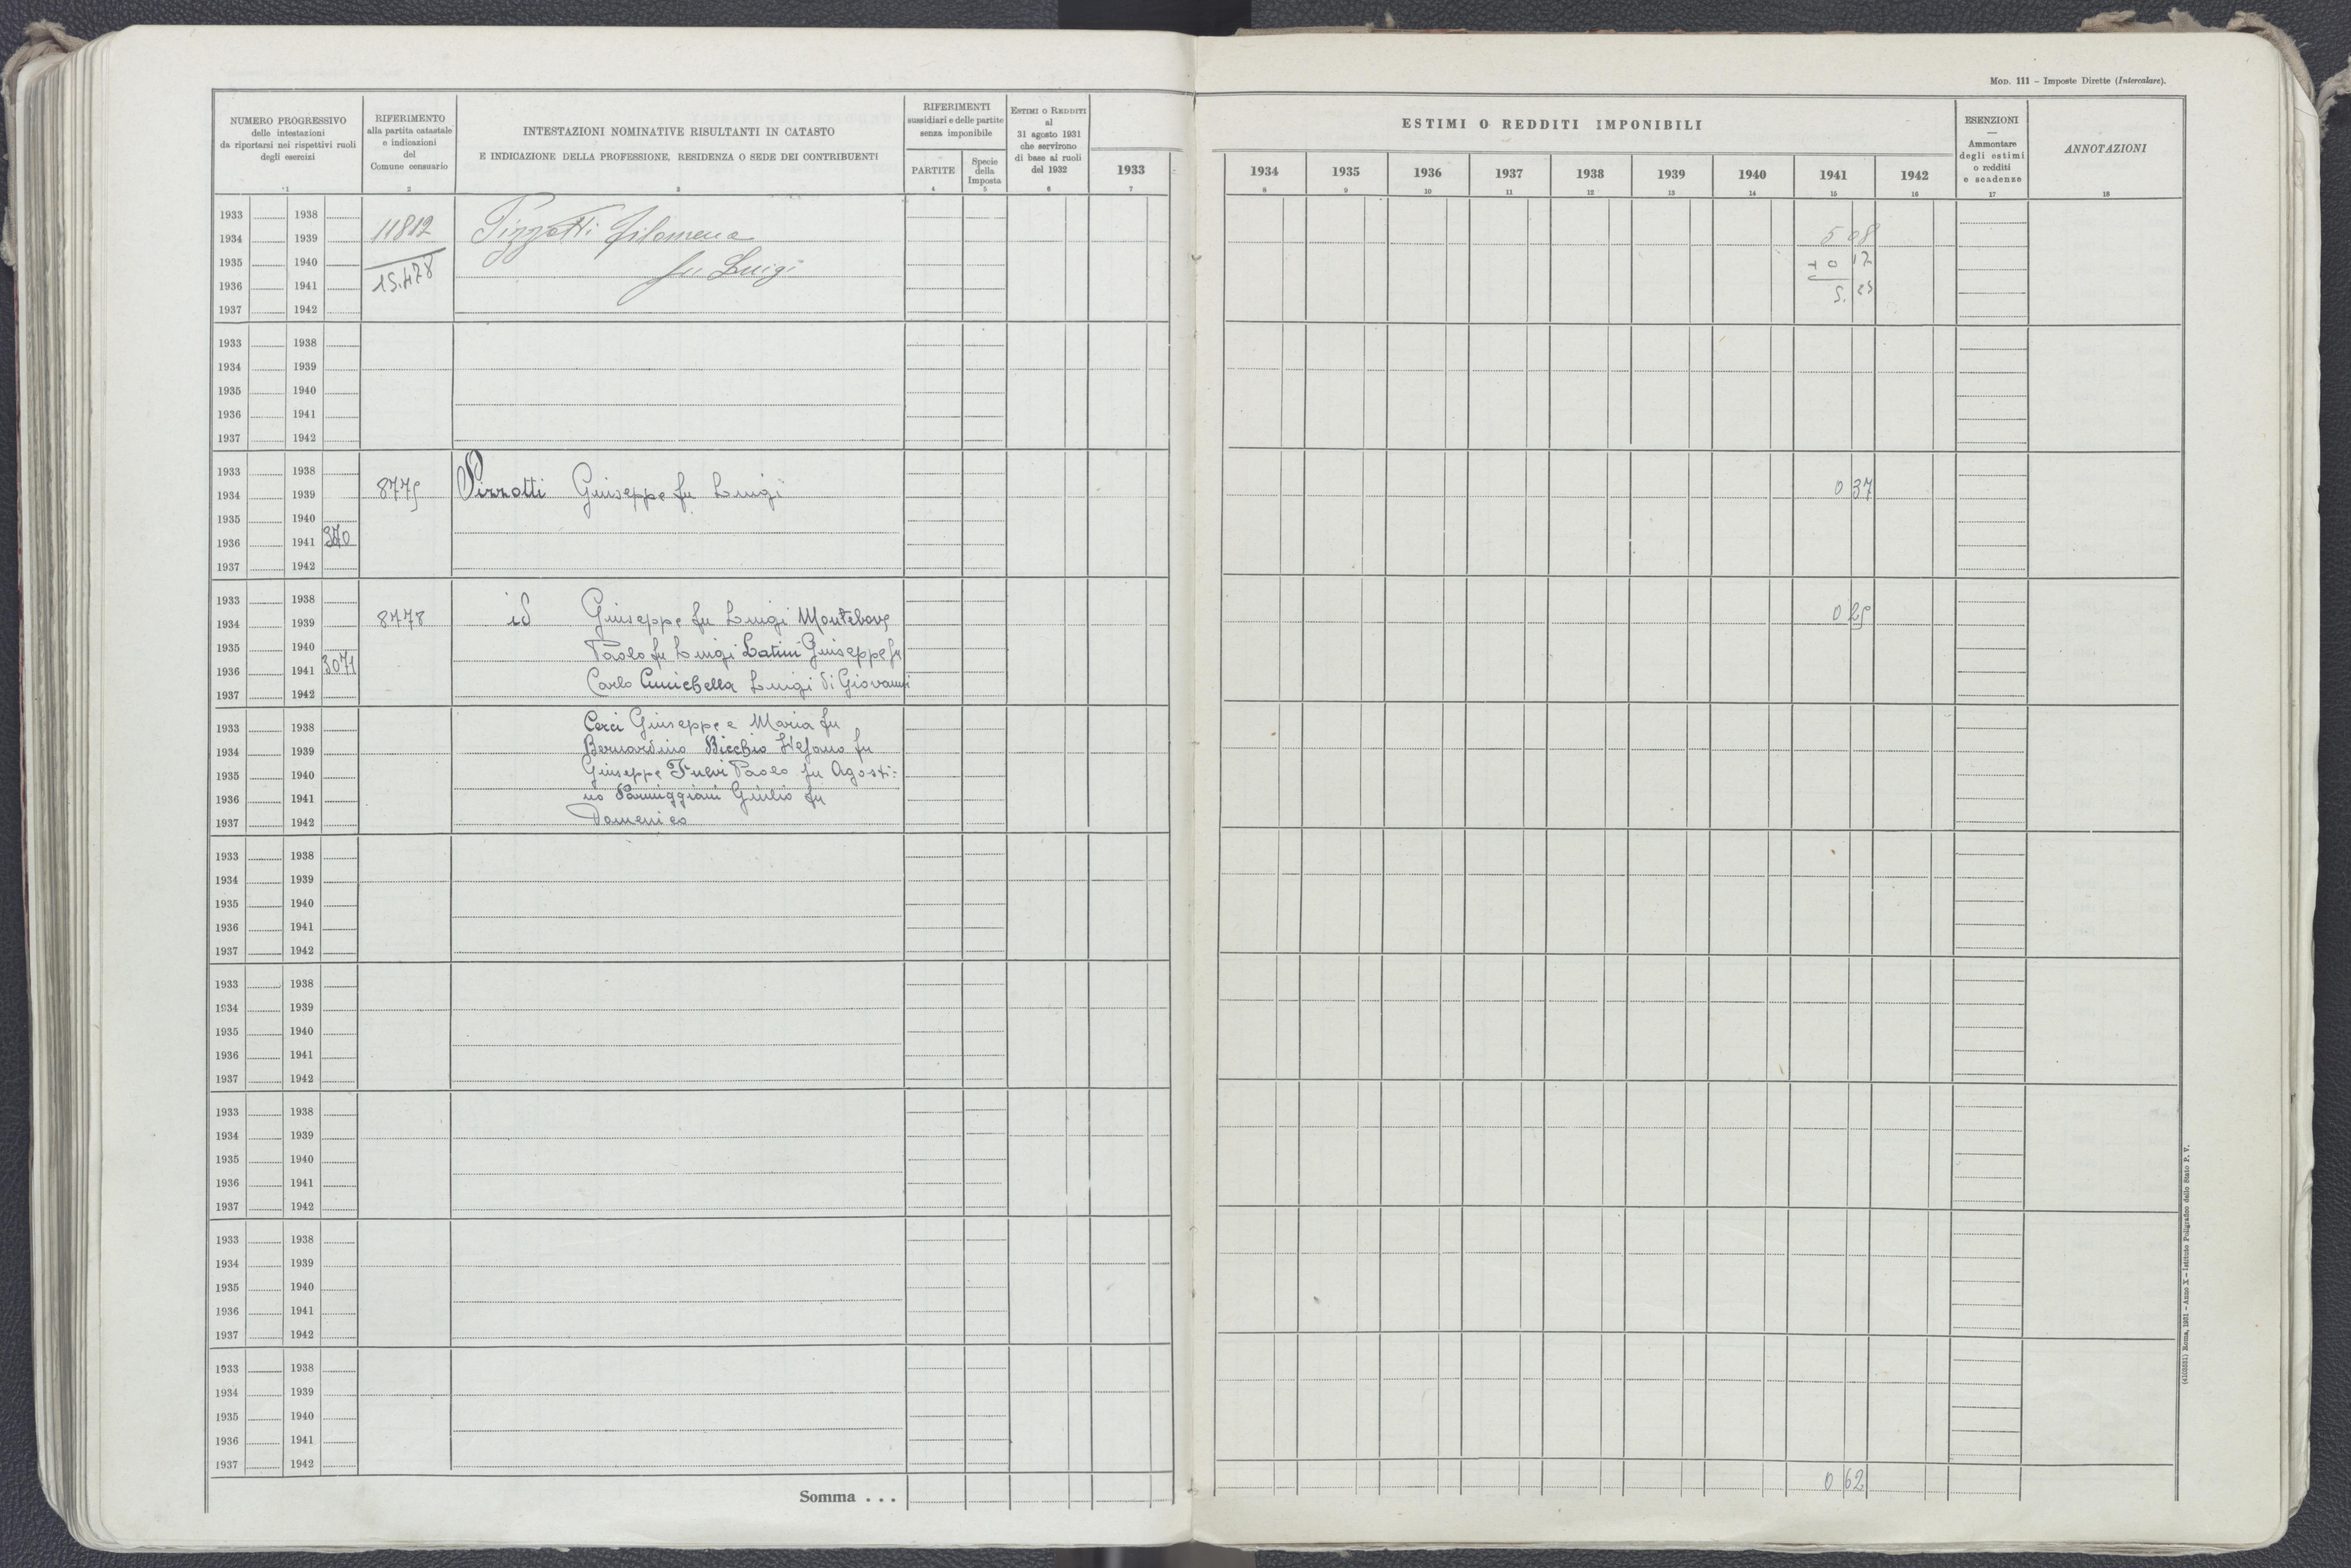 MOD. 111 – Imposte Dirette (Intercalare).
NUMERO PROGRESSIVO
delle intestazioni
da riportarsi nei rispettivi ruoli
degli esercizi
1
RIFERIMENTO
alla partita catastale
e indicazioni
del
Comune censuario
2
INTESTAZIONI NOMINATIVE RISULTANTI IN CATASTO
E INDICAZIONE DELLA PROFESSIONE, RESIDENZA O SEDE DEI CONTRIBUENTI
3
RIFERIMENTI
sussidiari e delle partite
senza imponibile
PARTITE
4
Specie
della
Imposta
5
ESTIMI O REDDITI
al
31 agosto 1931
che servirono
di base ai ruoli
del 1932
6
1933
7
ESTIMI O REDDITI IMPONIBILI
1934 1935 1936 1937 1938 1939 1940 1941 1942
8 9 10 11 12 13 14 15 16
ESENZIONI
—
Ammontare
degli estimi
o redditi
e scadenze
17
ANNOTAZIONI
18
1933 1938
1934 1939 11812 Pizzotti Filomena 5 08
1935 1940 15.478 fu Luigi + 0 17
1936 1941 5. 25
1937 1942
1933 1938
1934 1939
1935 1940
1936 1941
1937 1942
1933 1938
1934 1939 8775 Pizzotti Giuseppe fu Luigi 0 37
1935 1940
1936 1941
1937 1942
1933 1938
1934 1939 8778 id Giuseppe fu Luigi Montebove 0 25
1935 1940 Paolo fu Luigi Latini Giuseppe fu
1936 1941 3071
1937 1942 Carlo Cucichella Luigi di Giovanni
1933 1938 Cerci Giuseppe e Maria fu
1934 1939 Bernardino Bicchio Stefano fu
1935 1940 Giuseppe Fulvi Paolo fu Agosti=
1936 1941 no Parmiggiani Giulio fu
1937 1942 Domenico
1933 1938
1934 1939
1935 1940
1936 1941
1937 1942
1933 1938
1934 1939
1935 1940
1936 1941
1937 1942
1933 1938
1934 1939
1935 1940
1936 1941
1937 1942
1933 1938
1934 1939
1935 1940
1936 1941
1937 1942
1933 1938
1934 1939
1935 1940
1936 1941
1937 1942
Somma . . . 0 62
(4103331) Roma, 1931 – Anno X – Istituto Poligrafico dello Stato P. V.